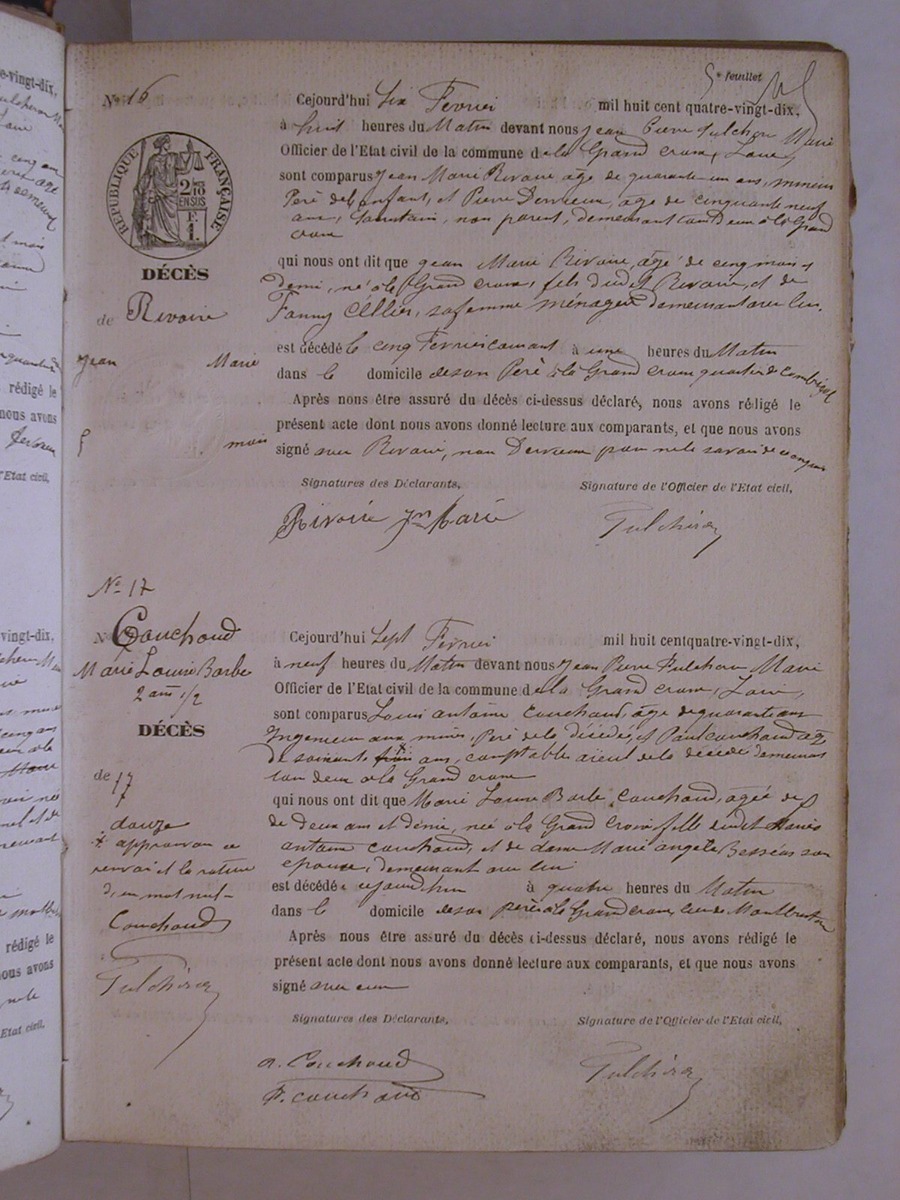 5e feuillet
No 16
Cejourd'hui six Fevrier mil huit cent quatre-vingt-dix,
à huit heures du Matin devant nous Jean Pierre Fulchiron Marie
Officier de l'Etat civil de la commune de la Grand croix, Loire,
sont comparus Jean Marie Rivoire, age de quarante un ans, mineur
Père de l'enfant, et Pierre Devrieux, age de cinquante neuf
ans, Cantonnier, non parent, demeurant tous deux à la Grand
croix
RÉPUBLIQUE FRANÇAISE
2/10
EN SUS
F.
1.
DÉCÈS
de Rivoire
Jean Marie
5 mois
qui nous ont dit que Jean Marie Rivoire, agé de cinq mois et
demi, né à la Grand croix, fils dudit Rivoire, et de
Fanny Cellier, sa femme ménagère demeurant avec lui.
est décédé le cinq Fevrier courant à une heures du Matin
dans le domicile de son Père à la Grand croix quartier de
Après nous être assuré du décès ci-dessus déclaré, nous avons rédigé le
présent acte dont nous avons donné lecture aux comparants, et que nous avons
signé avec Rivoire, non Devrieux pour ne le savoir de ce enquis
Signatures des Déclarants, Signature de l'Officier de l'Etat civil,
Rivoire Jn Marie
No 17
N Couchoud
Marie Louise Barbe
2 ans 1/2
DÉCÈS
de 17
douze
x approuvon ce
renvoi et la rature
d'un mot nul
Couchoud
Cejourd'hui sept Fevrier mil huit cent quatre-vingt-dix,
à neuf heures du Matin devant nous Jean Pierre Fulchiron Marie
Officier de l'Etat civil de la commune de la Grand croix, Loire,
sont comparus Louis antoine Couchoud, age de quarante ans
Ingenieur aux mines, Père de la décédée, et Paul Couchoud age
de soixante trois ans, comptable aïeul de la décédée demeurant
tous deux à la Grand croix
qui nous ont dit que Marie Louise Barbe Couchoud, agée de
de deux ans et demie, née à la Grand Croix, fille dudit Louis
antoine Couchoud, et de dame Marie angele Bessieus son
epouse, demeurant avec lui
est décédée aujourd'hui à quatre heures du Matin
dans le domicile de son père à la Grand croix, lieu de
Après nous être assuré du décès ci-dessus déclaré, nous avons rédigé le
présent acte dont nous avons donné lecture aux comparants, et que nous avons
signé avec eux
Signatures des Déclarants, Signature de l'Officier de l'Etat civil,
a. Couchoud
P. Couchoud